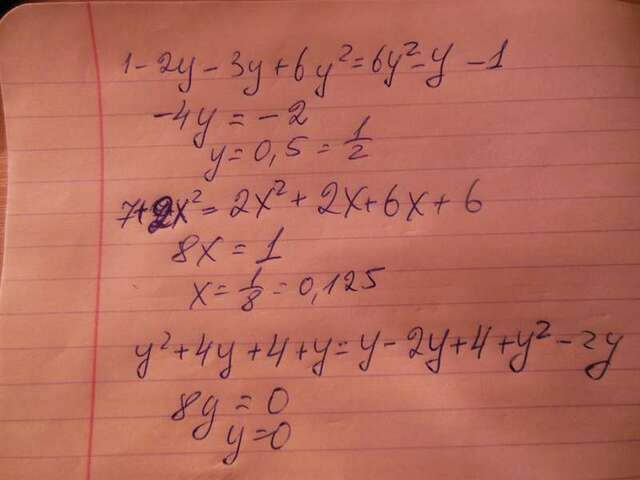 1 - 2y - 3y + 6y² = 6y² - y - 1
-4y = -2
y = 0,5 = 1/2
7 + 2x² = 2x² + 2x + 6x + 6
8x = 1
x = 1/8 = 0,125
y² + 4y + 4 + y = y - 2y + 4 + y² - 2y
8y = 0
y = 0